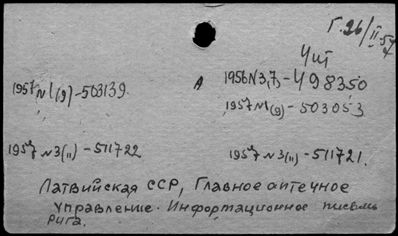 Г.26/II.57
Чит
1957 N1(9)-503139.
A 1956 N3(7)-498350
1957 N1(9)-503053
1957 N3(11)-511722
1957 N3(11)-511721.
Латвийская ССР, Главное аптечное
управление. Информационное письмо
Рига.